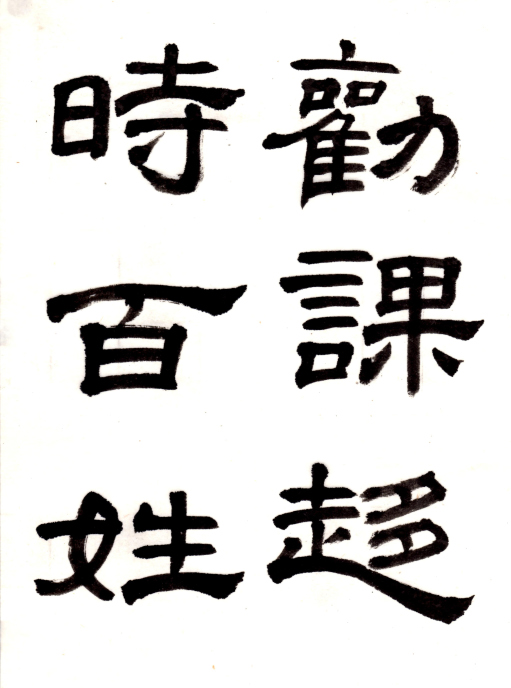 勸課趍
時百姓